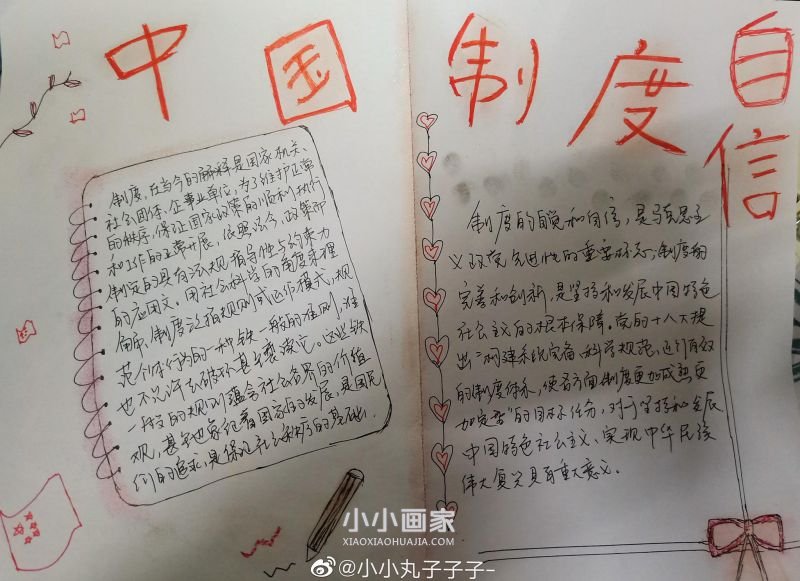 中国制度自信
制度,在当今的解释是国家机关、
社会团体、企事业单位,为了维护正常
的秩序,保证国家政策的顺利执行
和工作的正常开展,依照法令、政策而
制定的具有法规指导性与约束力
的应用文。用社会科学的角度来理
解,制度泛指规则或运作模式,规
范个体行为的一种铁一般的准则,准
也不允许去破坏甚至亵渎它。这些铁
一般的规则蕴含社会各界的价值
观,甚至也象征着国家的发展,是国民
们的追求,是保证社会秩序的基础。
制度的自觉和自信,是马克思主
义政党先进性的重要标志;制度的
完善和创新,是坚持和发展中国特色
社会主义的根本保障。党的十八大提
出"构建系统完备、科学规范、运行有效
的制度体系,使各方面制度更加成熟更
加定型"的目标任务,对于坚持和发展
中国特色社会主义、实现中华民族
伟大复兴具有重大意义。
小小画家
XIAOXIAOHUAJIA.COM
@小小丸子子子-